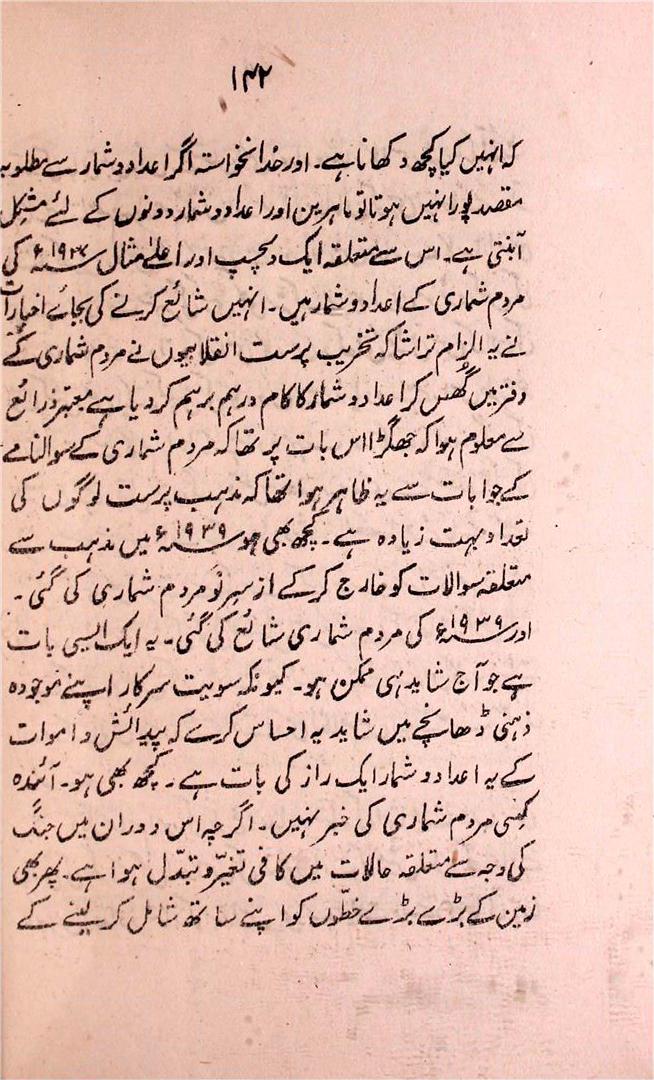 ۱۴۲
کہ انہیں کیا کچھ دکھانا ہے۔ اور خدانخواستہ اگر اعداد و شمار سے مطلوبہ
مقصد پورا نہیں ہوتا تو ماہرین اور اعداد و شمار دونوں کے لئے مشکل
آبنتی ہے۔ اس سے متعلقہ ایک دلچسپ اور اعلےٰ مثال ۱۹۳۷ء کی
مردم شماری کے اعداد و شمار ہیں۔ انہیں شائع کرنے کی بجائے اخبارات
نے یہ الزام تراشا کہ تخریب پرست انقلابیوں نے مردم شماری کے
دفتر میں گھُس کر اعداد و شمار کا کام درہم برہم کر دیا ہے معتبر ذرائع
سے معلوم ہوا کہ جھگڑا اس بات پر تھا کہ مردم شماری کے سوالنامے
کے جوابات سے یہ ظاہر ہوا تھا کہ مذہب پرست لوگوں کی
تعداد بہت زیادہ ہے۔ کچھ بھی ہو ۱۹۳۹ء میں مذہب سے
متعلقہ سوالات کو خارج کر کے از سرِ نَو مردم شماری کی گئی۔
اور ۱۹۳۹ء کی مردم شماری شائع کی گئی۔ یہ ایک ایسی بات
ہے جو آج شاید ہی ممکن ہو۔ کیونکہ سوویت سرکار اپنے موجودہ
ذہنی ڈھانچے میں شاید یہ احساس کرے کہ پیدائش و اموات
کے یہ اعداد و شمار ایک راز کی بات ہے۔ کچھ بھی ہو۔ آئندہ
کسی مردم شماری کی خبر نہیں۔ اگرچہ اس دوران میں جنگ
کی وجہ سے متعلقہ حالات میں کافی تغیّر و تبدّل ہوا ہے۔ پھر بھی
زمین کے بڑے بڑے خطّوں کو اپنے ساتھ شامل کر لینے کے